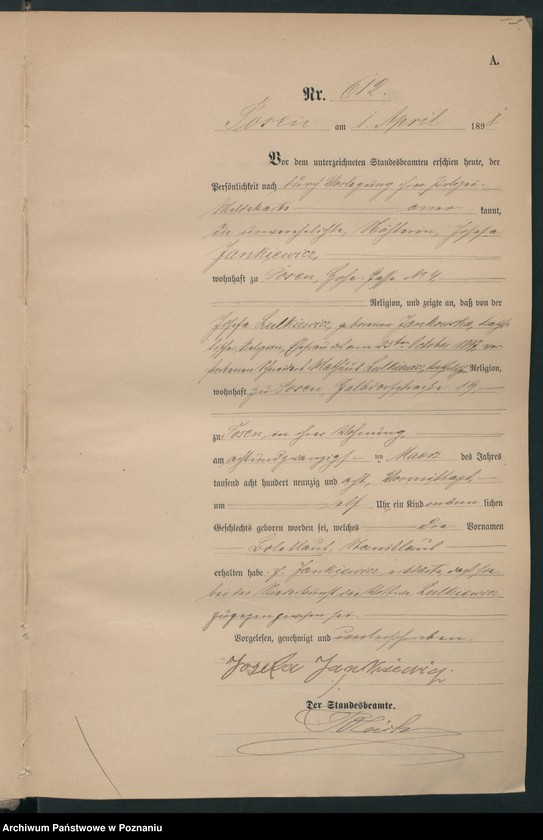 A.
Nr. 612.
Posen am 1. April 1898
Vor dem unterzeichneten Standesbeamten erschien heute, der
Persönlichkeit nach durch Vorlegung ihrer Polizei-
Meldekarte aner kannt,
die unverehelichte, Nähterin, Josefa
Jankiewicz,
wohnhaft zu Posen, Gasse No 4,
Religion, und zeigte an, daß von der
Josefa Lutkiewicz, geborenen Jankowska, katho-
lischer Religion, Ehefrau des am 25ten October 1897 ver-
storbenen Schneiders Lutkiewicz, Religion,
wohnhaft zu Posen, Halbdorfstraße 19
zu Posen, in ihrer Wohnung,
am achtundzwanzigsten März des Jahres
tausend acht hundert neunzig und acht, Vormittags,
um elf Uhr, ein Kind männ lichen
Geschlechts geboren worden sei, welches die Vornamen
Boleslaus, Stanislaus
erhalten habe. p. Jankiewicz erklärte, daß sie
bei der Niederkunft der Wittwe Lutkiewicz
zugegen gewesen sei.
Vorgelesen, genehmigt und unterschrieben.
Josefa Jankiewicz.
Der Standesbeamte.
Archiwum Państwowe w Poznaniu